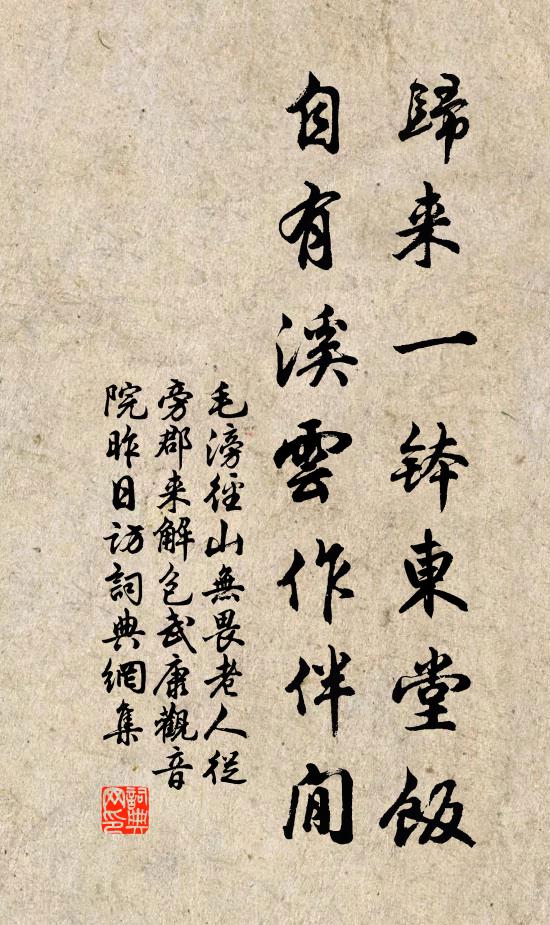 歸来一鉢東堂飯
自有溪雲作伴閒
毛滂徑山無畏老人從
旁郡来解包武康觀音
院昨日訪詞典網集
詞典网印